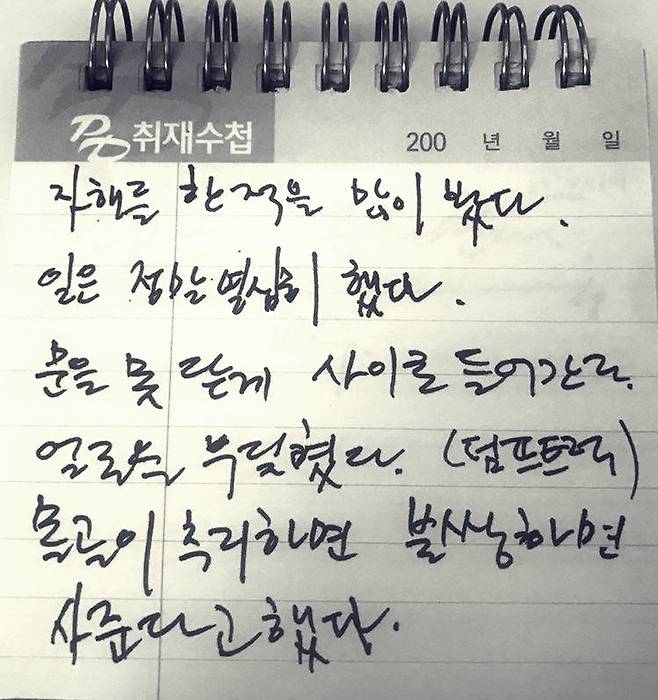 PD 취재수첩
200 년 월 일
자해를 한 적을 많이 봤다.
일은 정말 열심히 했다.
문을 못 닫게 사이로 들어간다.
얼굴도 부딪혔다. (덤프트럭)
몰골이 초라하면 불쌍하면
사준다고 했다.